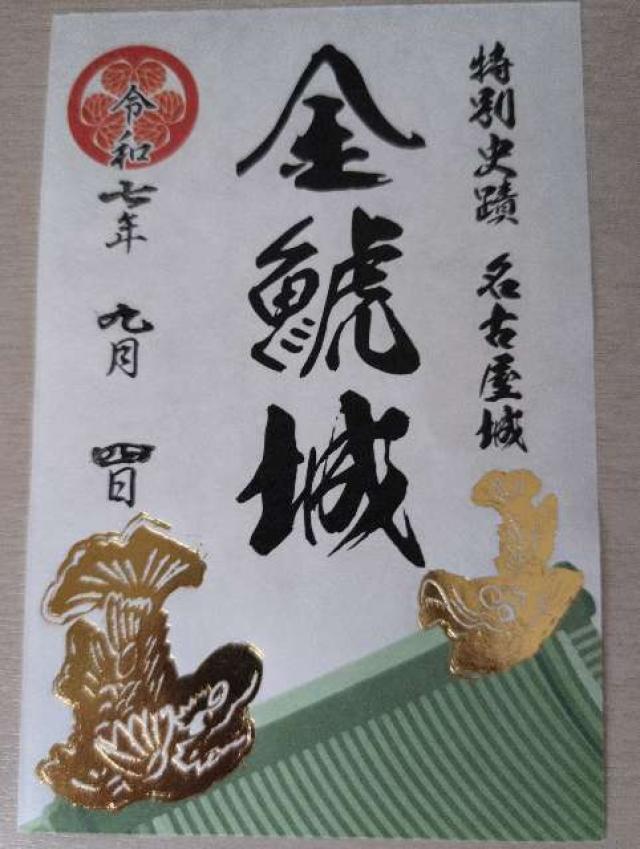 特別史蹟 名古屋城
金鯱城
令和七年 九月 四日